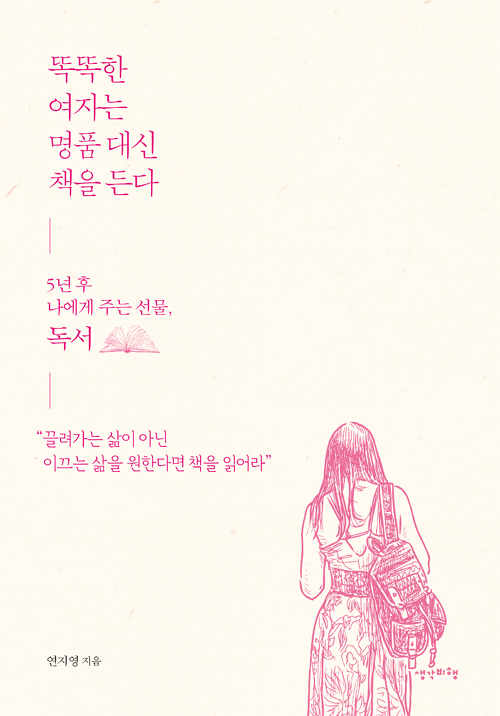 똑똑한
여자는
명품 대신
책을 든다
5년 후
나에게 주는 선물,
독서
“끌려가는 삶이 아닌
이끄는 삶을 원한다면 책을 읽어라”
연지영 지음
생각비행